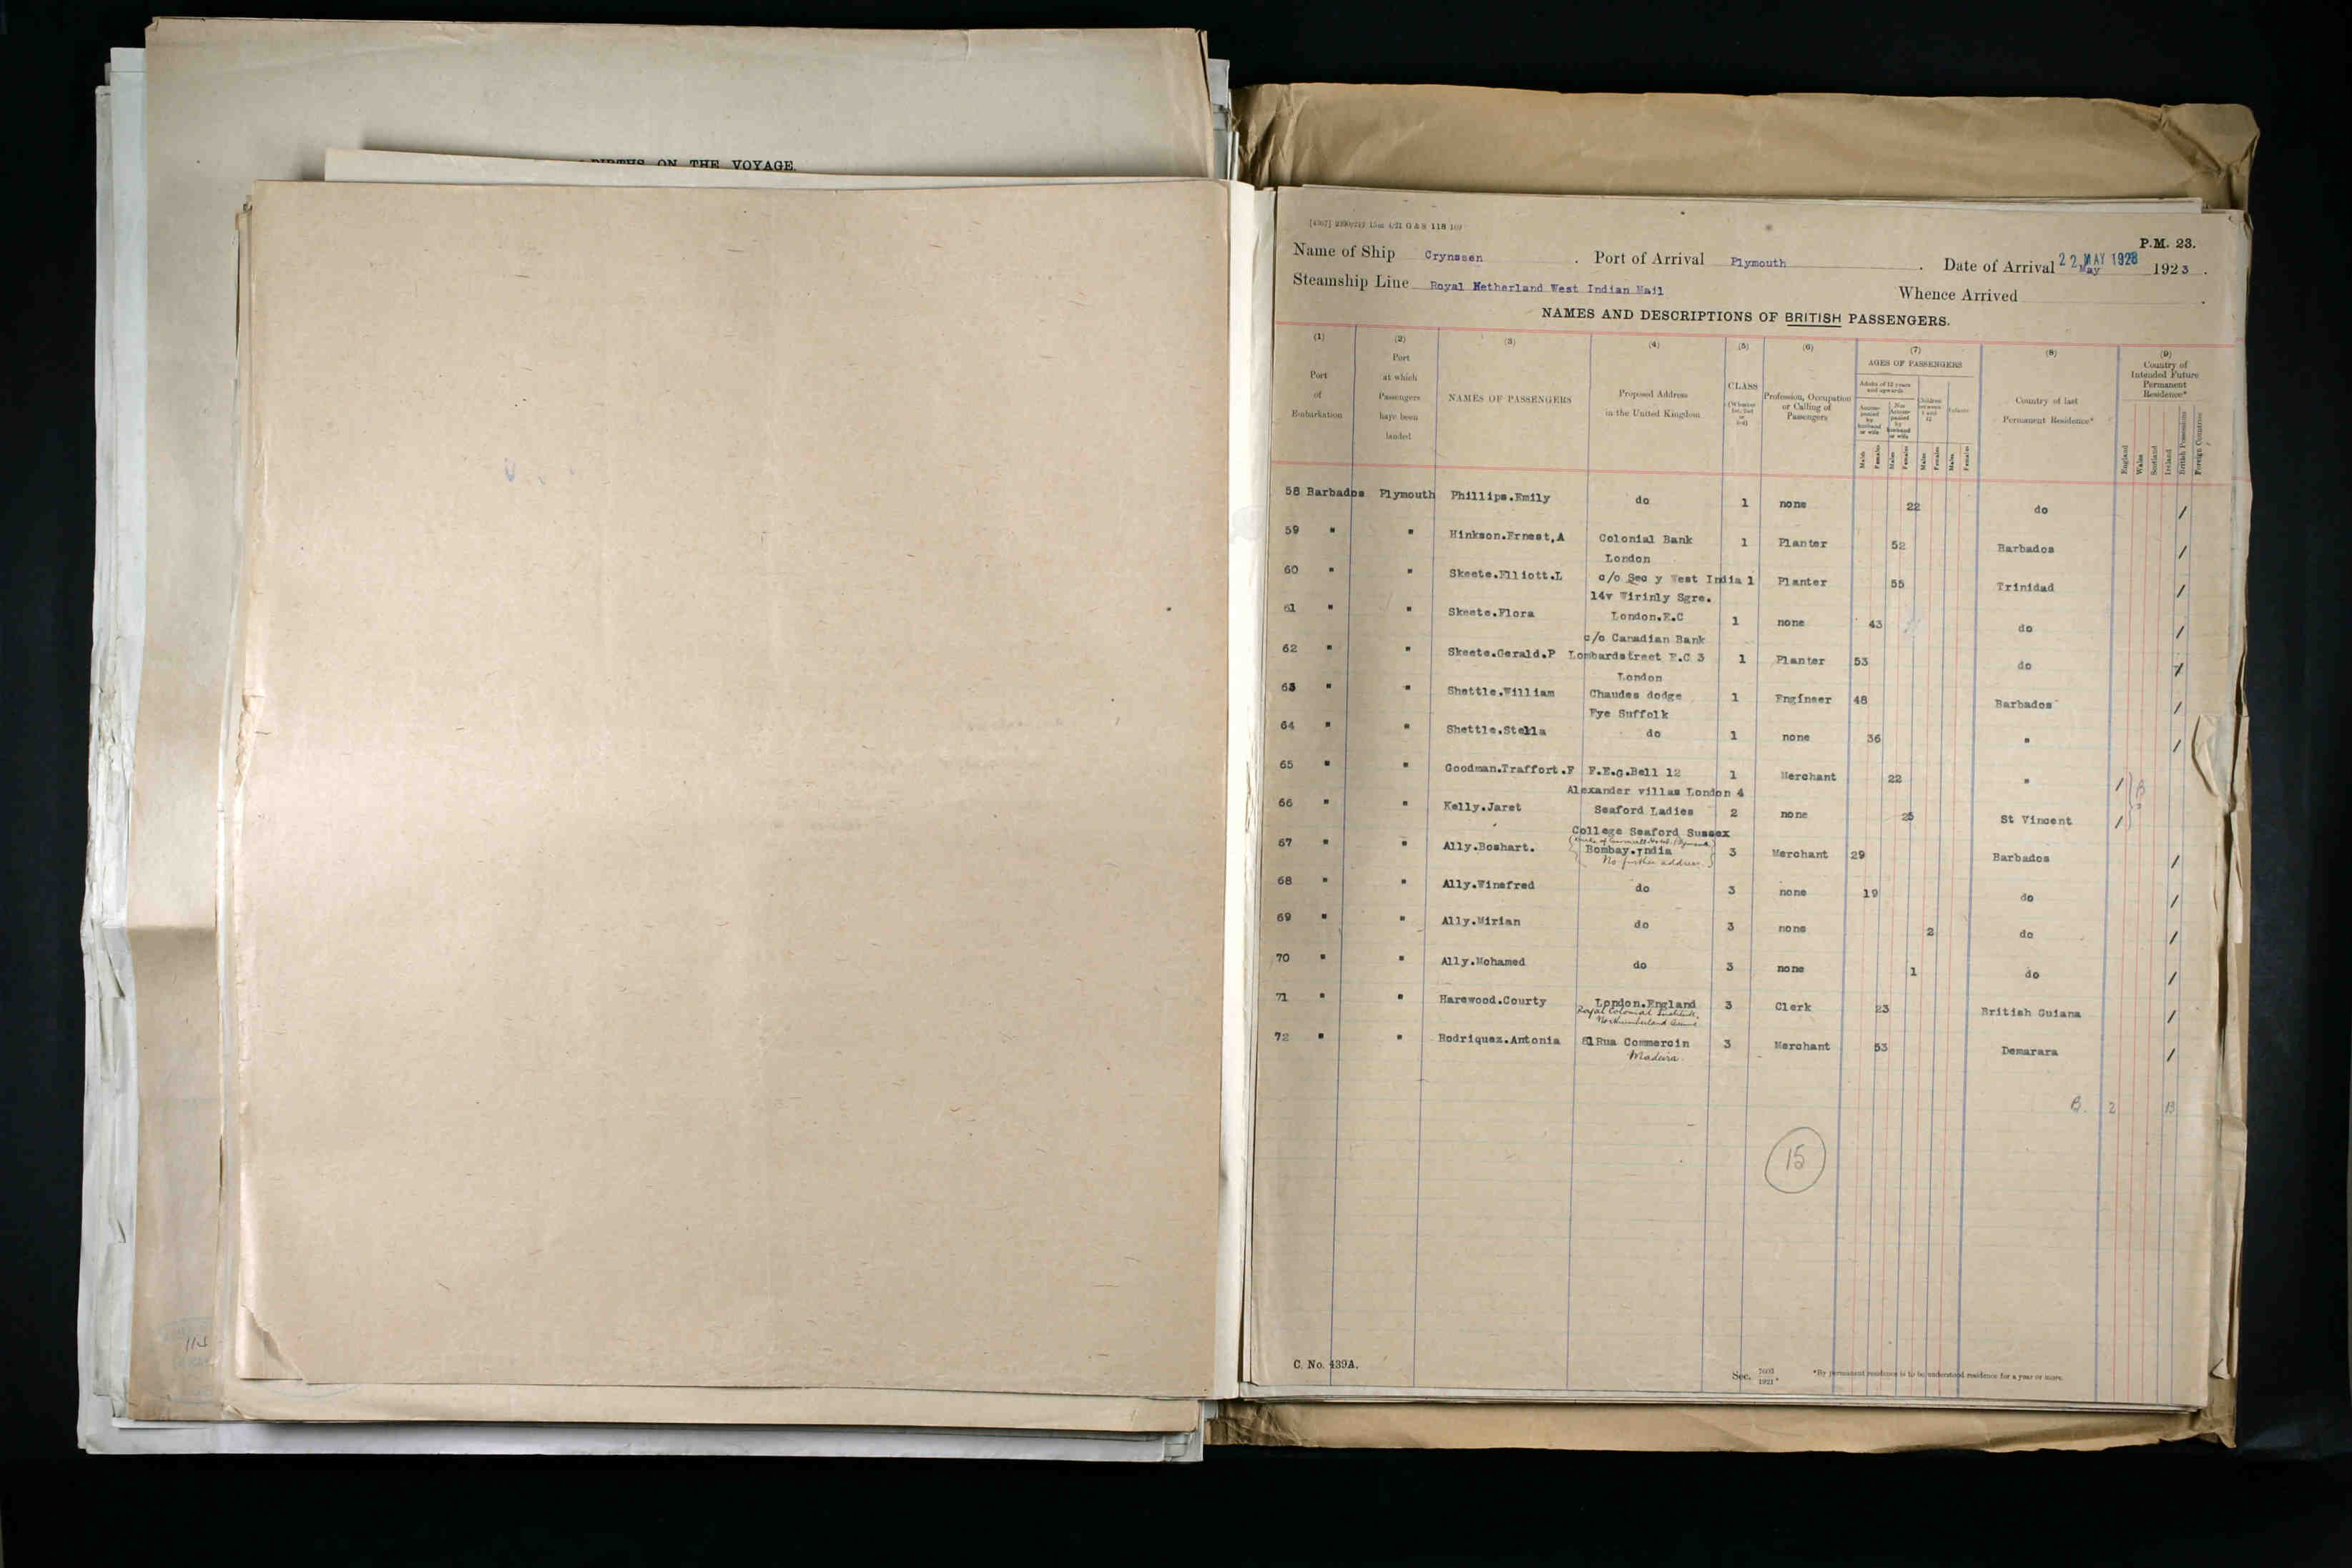 BIRTHS ON THE VOYAGE.
P.M. 23.
Name of Ship Crynssen . Port of Arrival Plymouth . Date of Arrival 22 MAY 1923 May 1923 .
Steamship Line Royal Netherland West Indian Mail Whence Arrived .
NAMES AND DESCRIPTIONS OF BRITISH PASSENGERS.
(1) (2) (3) (4) (5) (6) (7) (8) (9)
Port of Embarkation
Port at which Passengers have been landed
NAMES OF PASSENGERS
Proposed Address in the United Kingdom
CLASS (Whether 1st, 2nd or 3rd)
Profession, Occupation or Calling of Passengers
AGES OF PASSENGERS
Adults of 12 years and upwards
Accompanied by husband or wife
Not Accompanied by husband or wife
Children between 1 and 12
Infants
Males Females Males Females Males Females Males Females
Country of last Permanent Residence*
Country of Intended Future Permanent Residence*
England Wales Scotland Ireland British Possessions Foreign Countries
58 Barbados Plymouth Phillips.Emily do 1 none 22 do /
59 " " Hinkson.Ernest,A Colonial Bank 1 Planter 52 Barbados /
London
60 " " Skeete.Elliott.L c/o Sec y West India 1 Planter 55 Trinidad /
14v Wirinly Sgre.
61 " " Skeete.Flora London.E.C 1 none 43 do /
c/o Canadian Bank
62 " " Skeete.Gerald.P Lombardstreet E.C 3 1 Planter 53 do /
London
63 " " Shettle.William Chaudes dodge 1 Engineer 48 Barbados /
Eye Suffolk
64 " " Shettle.Stella do 1 none 36 " /
65 " " Goodman.Traffort.F F.E.G.Bell 12 1 Merchant 22 " /
Alexander villas London 4
66 " " Kelly.Jaret Seaford Ladies 2 none 25 St Vincent /
College Seaford Sussex
67 " " Ally.Boshart. Bombay.India 3 Merchant 29 Barbados /
No further address
68 " " Ally.Winefred do 3 none 19 do /
69 " " Ally.Mirian do 3 none 2 do /
70 " " Ally.Mohamed do 3 none 1 do /
71 " " Harewood.Courty London.England 3 Clerk 23 British Guiana /
Royal Colonial Institute.
Northumberland Avenue
72 " " Rodriquez.Antonia 81 Rua Commercin 3 Merchant 53 Demarara /
Madeira.
B. 2 13
15
C. No. 439A.
Sec. 7693/1921
*By permanent residence is to be understood residence for a year or more.